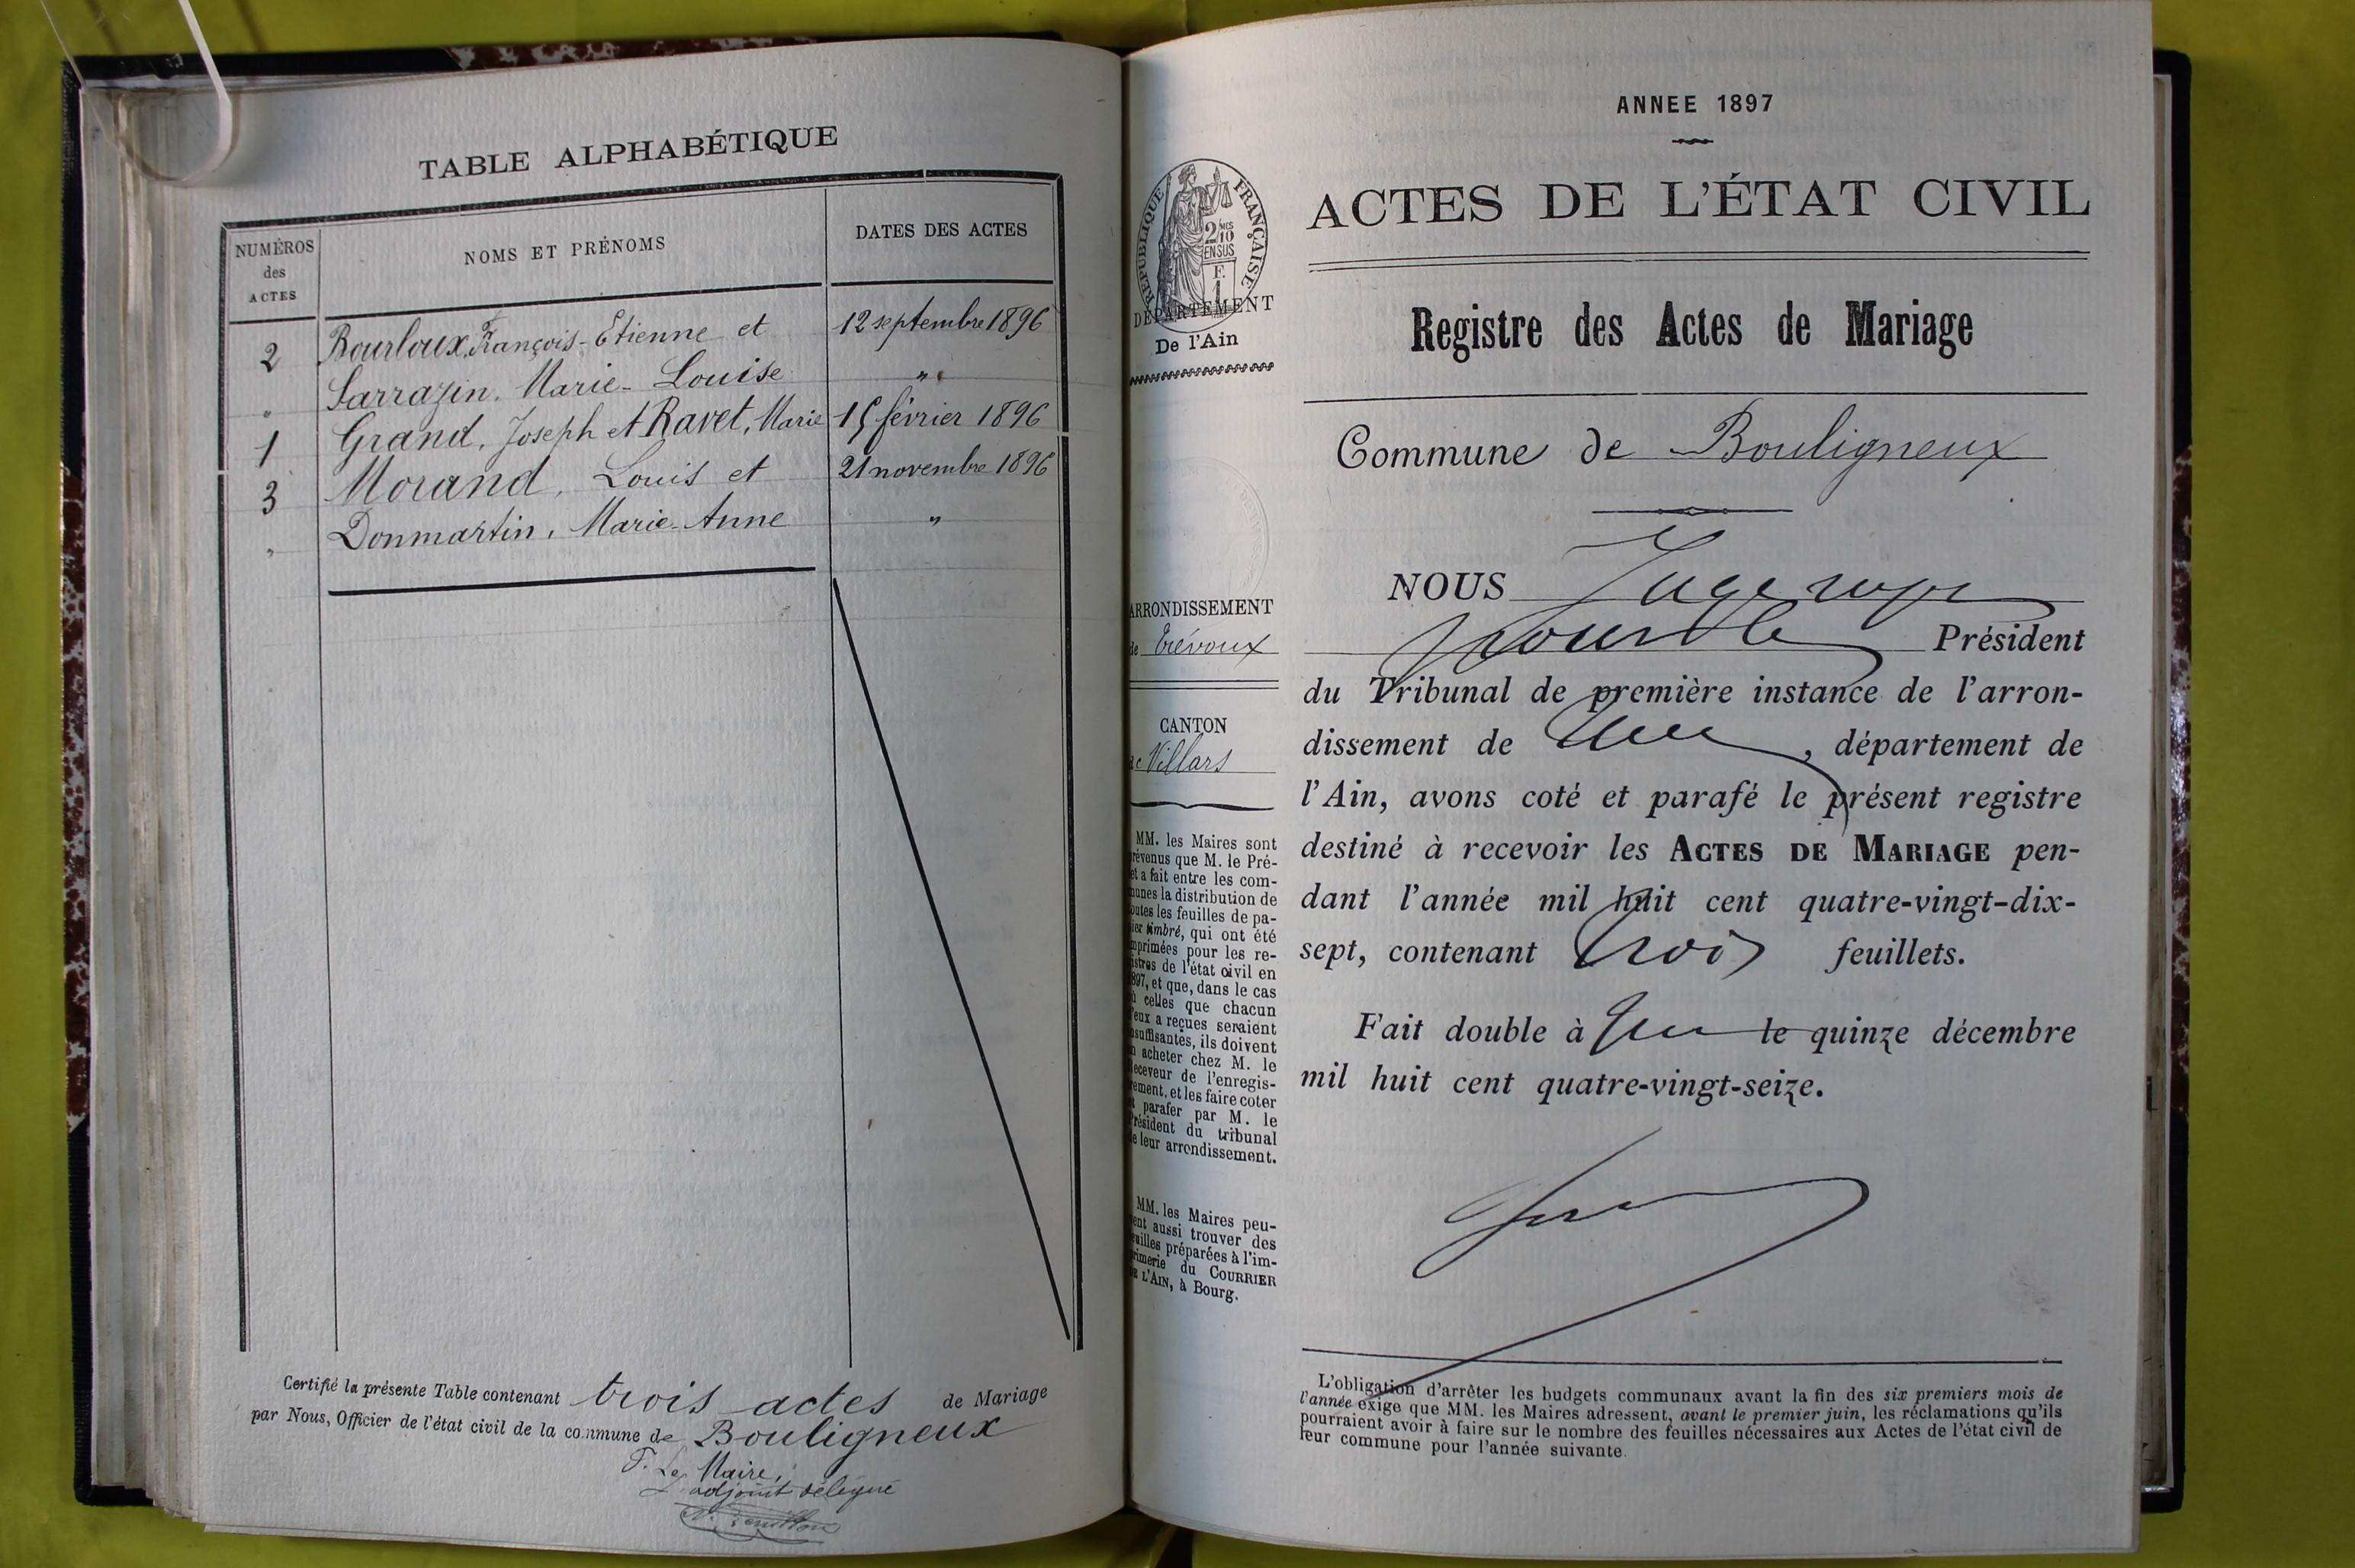 TABLE ALPHABÉTIQUE
NUMÉROS
des
ACTES
NOMS ET PRÉNOMS
DATES DES ACTES
2 Bourloux, François-Etienne et 12 septembre 1896
" Sarrazin, Marie-Louise "
1 Grand, Joseph et Ravet, Marie 15 février 1896
3 Morand, Louis et 21 novembre 1896
" Donmartin, Marie-Anne "
Certifié la présente Table contenant trois actes de Mariage
par Nous, Officier de l'état civil de la commune de Bouligneux
P. Le Maire,
L'adjoint délégué
REPUBLIQUE FRANÇAISE
2 MES
10
EN SUS
F.
1
DÉPARTEMENT
De l'Ain
ARRONDISSEMENT
de Trévoux
CANTON
de Villars
MM. les Maires sont
révenus que M. le Pré-
et a fait entre les com-
munes la distribution de
outes les feuilles de pa-
ier timbré, qui ont été
mprimées pour les re-
istres de l'état civil en
897, et que, dans le cas
ù celles que chacun
'eux a reçues seraient
nsuffisantes, ils doivent
n acheter chez M. le
eceveur de l'enregis-
rement, et les faire coter
t parafer par M. le
Président du tribunal
e leur arrondissement.
MM. les Maires peu-
ent aussi trouver des
euilles préparées à l'im-
rimerie du COURRIER
DE L'AIN, à Bourg.
ANNEE 1897
ACTES DE L'ÉTAT CIVIL
Registre des Actes de Mariage
Commune de Bouligneux
NOUS Juge
pour le Président
du Tribunal de première instance de l'arron-
dissement de , département de
l'Ain, avons coté et parafé le présent registre
destiné à recevoir les ACTES DE MARIAGE pen-
dant l'année mil huit cent quatre-vingt-dix-
sept, contenant trois feuillets.
Fait double à le quinze décembre
mil huit cent quatre-vingt-seize.
L'obligation d'arrêter les budgets communaux avant la fin des six premiers mois de
l'année exige que MM. les Maires adressent, avant le premier juin, les réclamations qu'ils
pourraient avoir à faire sur le nombre des feuilles nécessaires aux Actes de l'état civil de
leur commune pour l'année suivante.